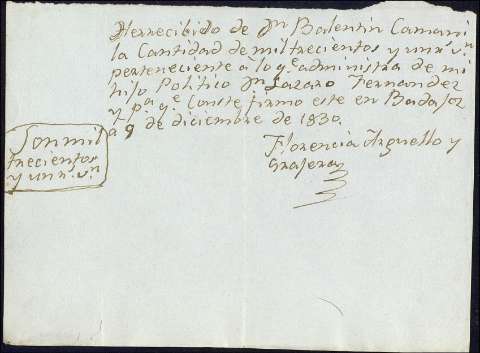 Herrecibido de Dn Balentin Camani
la Cantidad de miltrecientos y un r.s v.n
perteneciente a lo q.e administra de mi
hijo Politico Dn Lazaro Fernandez
y p.a q.e Conste firmo este en Badajoz
a 9 de diciembre de 1830.
Florencia Arguello y
Grajera
Son mil
trecientos
y un r.s v.n